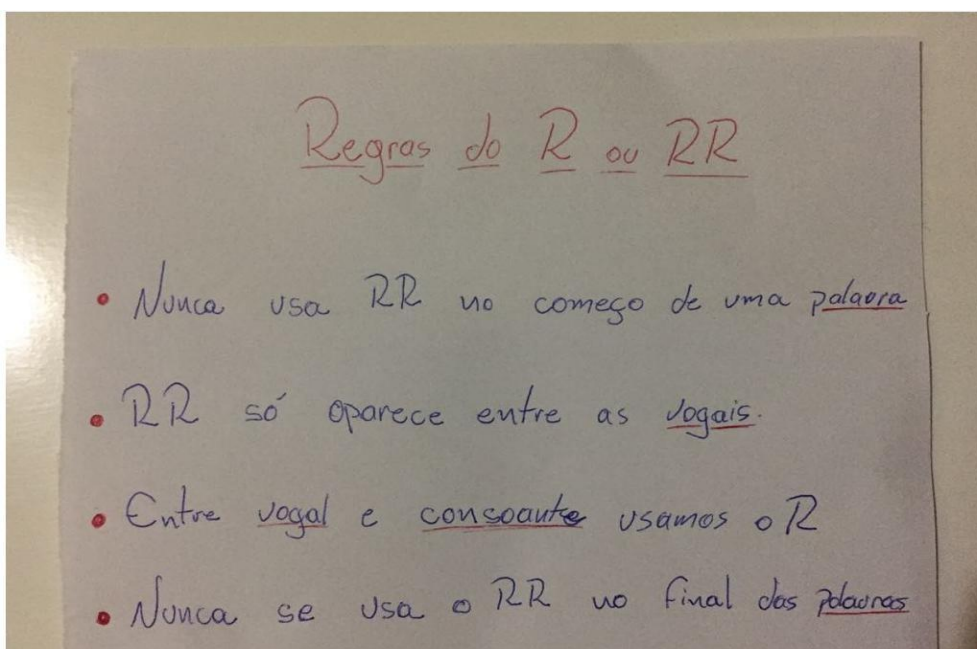 Regras do R ou RR
• Nunca usa RR no começo de uma palavra
• RR só aparece entre as vogais.
• Entre vogal e consoante usamos o R
• Nunca se usa o RR no final das palavras